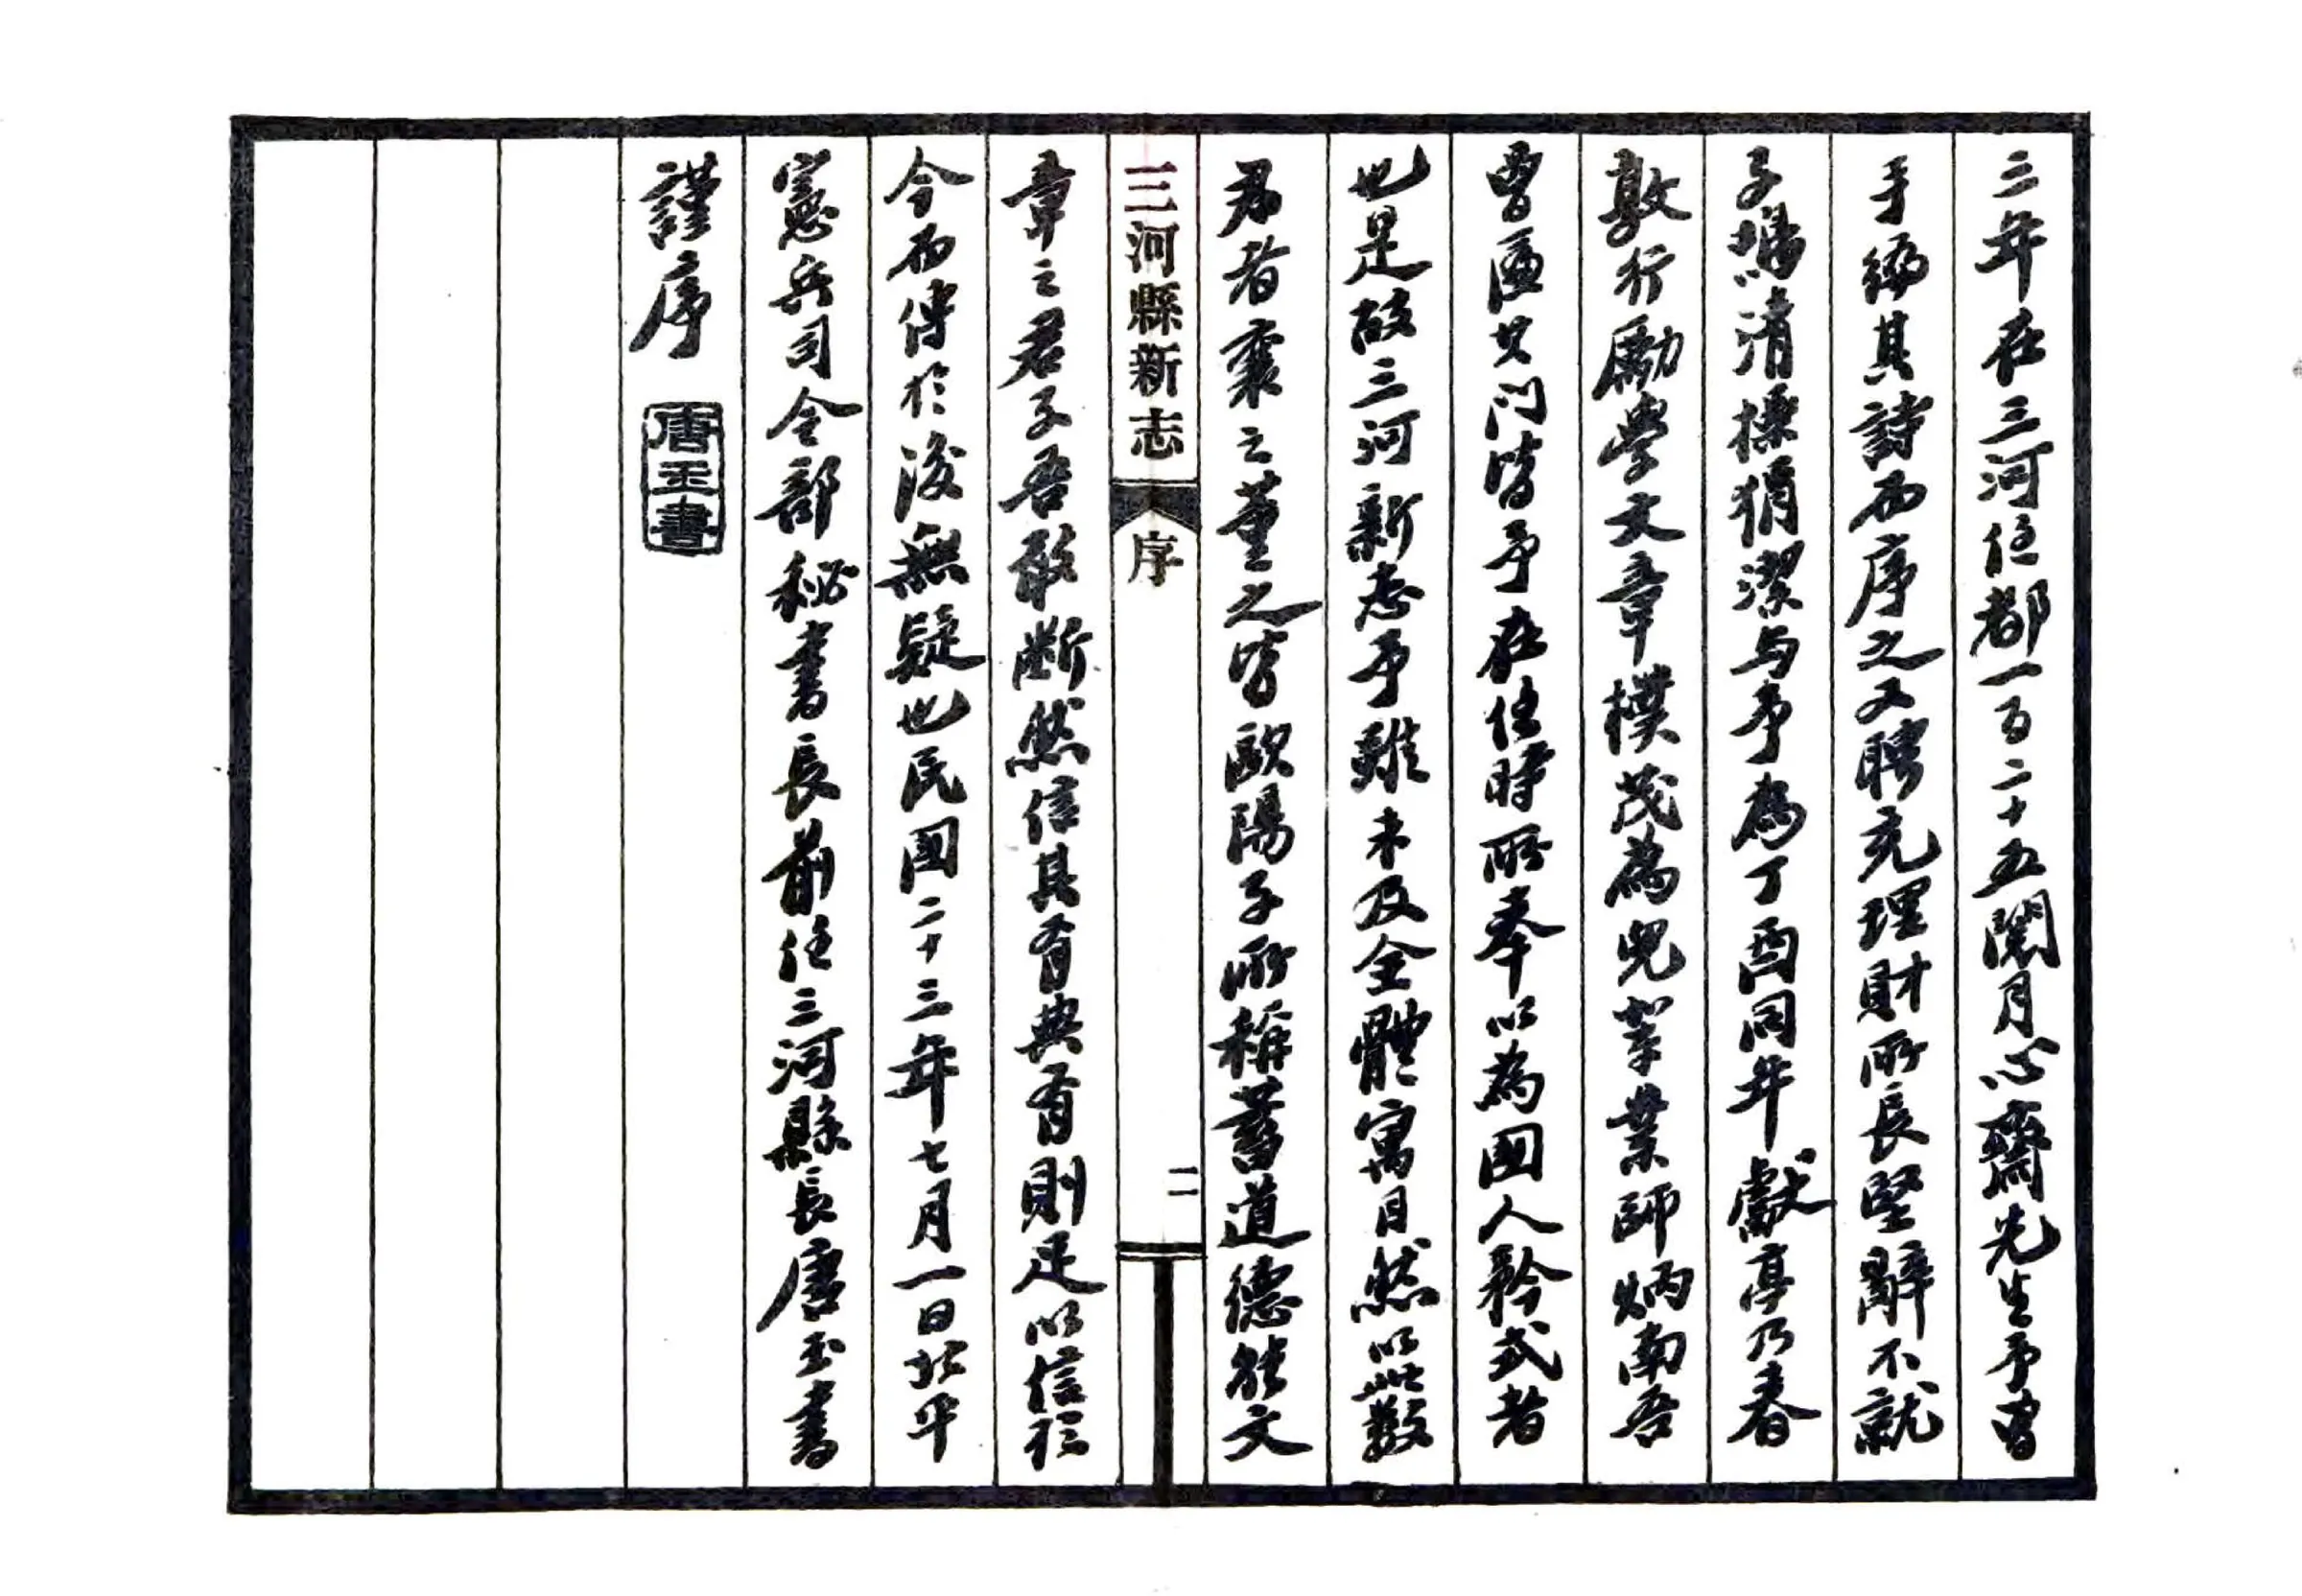 三年在三河任都一百二十五閱月心齋先生予曾
手編其詩而序之又聘充理財所長堅辭不就
子鳴清操狷潔与予為丁酉同年獻亭乃春
敦行勵學文章樸茂為兒輩業師炳南吾
曾匾其門皆予在任時所奉以為國人矜式者
也是故三河新志予雖未及全體寓目然以此數
君者裒之董之皆歐陽子所稱蓄道德能文
三河縣新志 序 二
章之君子吾敢斷然信其有典有則足以信於
今而傳於後無疑也民國二十三年七月一日北平
憲兵司令部秘書長前任三河縣長唐玉書
謹序
唐玉書